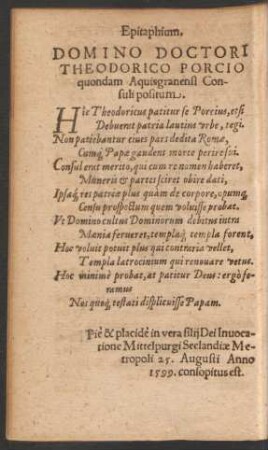 Epitaphium.
DOMINO DOCTORI
THEODORICO PORCIO
quondam Aquisgranensi Con-
suli positum.
Hic Theodoricus patitur se Porcius, etsi
Debuerit patria lautius vrbe, tegi.
Non patiebantur ciues pars dedita Romæ,
Cumq́ Papa gaudens morte perire soi.
Consul erat merito, qui cum re nomen haberet,
Muneris & partes sciret obire dati,
Ipsáq́ res patriæ plus quàm de corpore, opumq́
Censu prospectum quem voluisse probat.
Vt Domino cultus Dominorum debitus intra
Mœnia ferueret, templaq́ templa forent,
Hoc voluit potuit plus qui contraria vellet,
Templa latrocinium qui renouare vetus.
Hoc minimè probat, at patitur Deus: ergò fe-
ramus
Nos quoq́ testati displicuisse Papam.
Piè & placidè in vera filij Dei Inuoca-
tione Mittelpurgi Seelandiæ Me-
tropoli 25. Augusti Anno
1599. consopitus est.